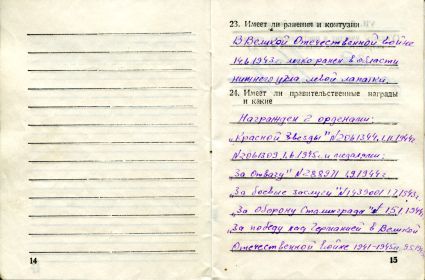 23. Имеет ли ранения и контузии
В Великой Отечественной войне
14.6.1943г. легко ранен в области
нижнего угла левой лопатки.
24. Имеет ли правительственные награды
и какие
Награжден 2 орденами:
"Красной Звезды" 1.11.1944г.
1.6.1945г. и медалями:
"За Отвагу" 1.9.1944г.
"За боевые заслуги" 1.7.1943г.
"За Оборону Сталинграда" № 15.1.1944г.
"За победу над Германией в Великой
Отечественной Войне 1941-1945г."
14
15